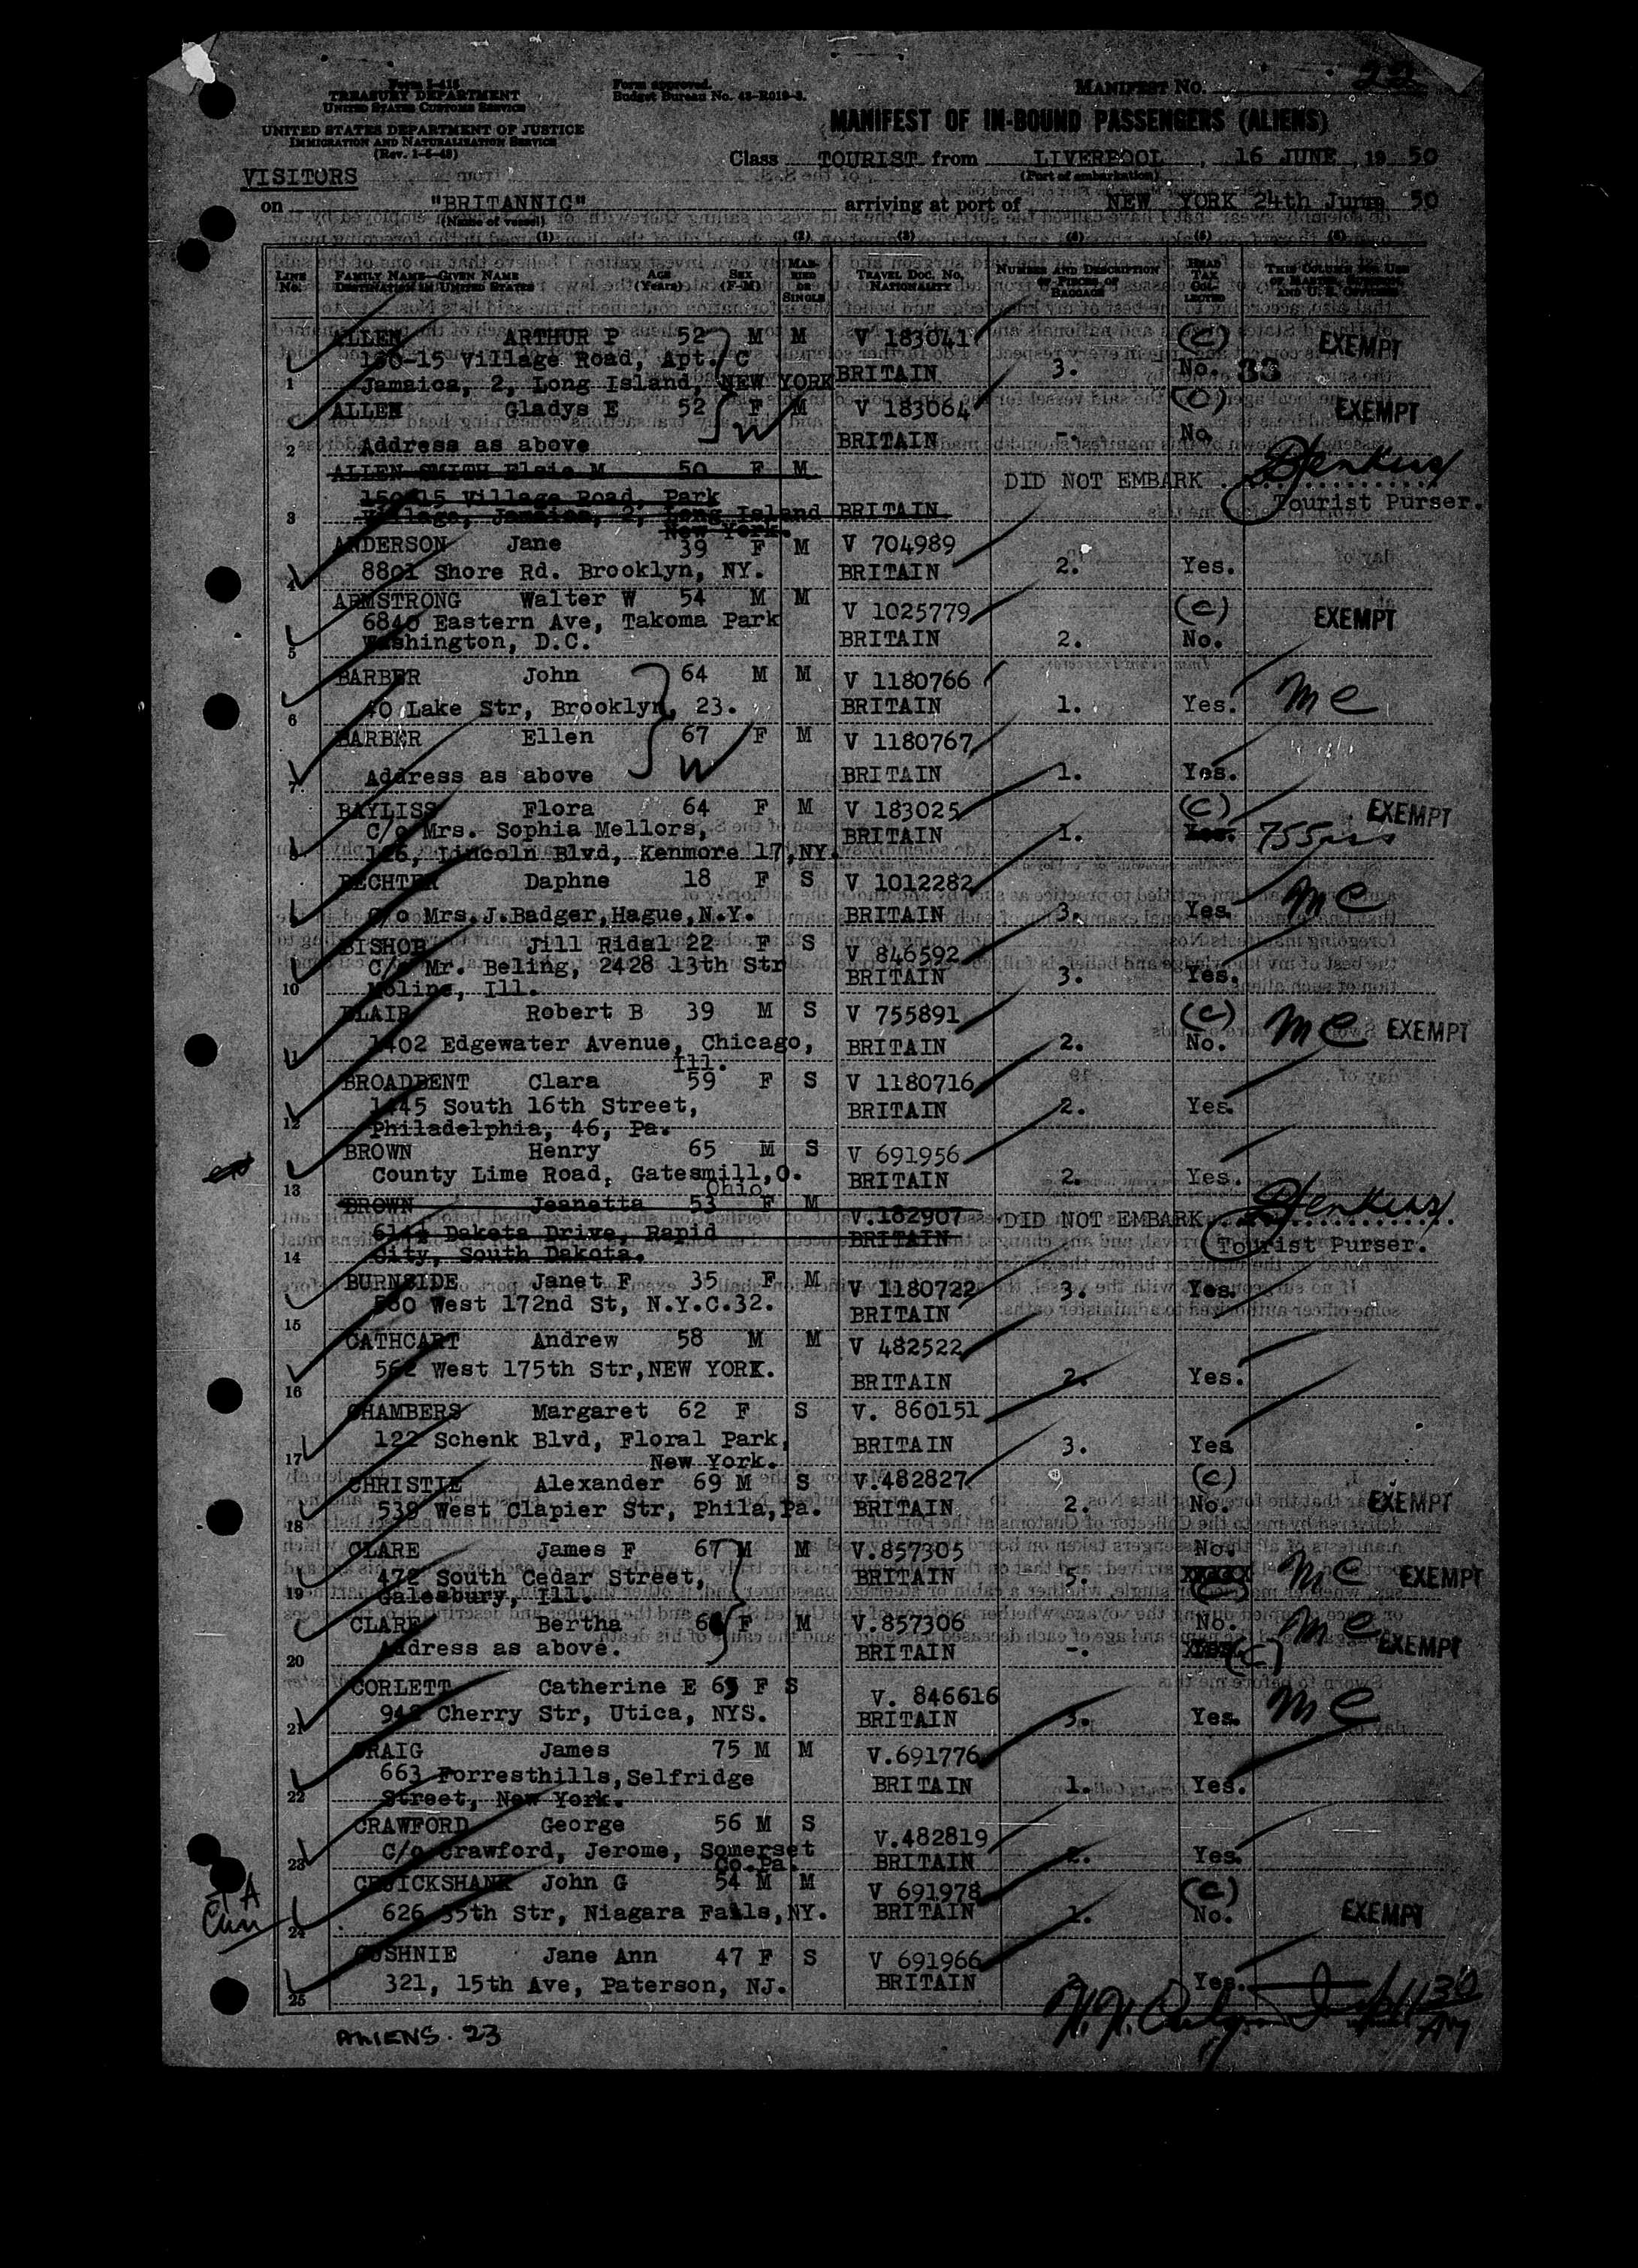 Form I-415
TREASURY DEPARTMENT
UNITED STATES CUSTOMS SERVICE
UNITED STATES DEPARTMENT OF JUSTICE
IMMIGRATION AND NATURALIZATION SERVICE
(Rev. 1-5-49)
Form approved.
Budget Bureau No. 43-R019-3.
MANIFEST NO. 22
MANIFEST OF IN-BOUND PASSENGERS (ALIENS)
Class TOURIST from LIVERPOOL, 16 JUNE, 19 50
(Port of embarkation)
VISITORS
on "BRITANNIC" arriving at port of NEW YORK 24th June 50
(Name of vessel)
(1) (2) (3) (4) (5) (6)
LINE No. FAMILY NAME—GIVEN NAME DESTINATION IN UNITED STATES AGE (Years) SEX (F-M) MARRIED OR SINGLE TRAVEL DOC. NO. NATIONALITY NUMBER AND DESCRIPTION OF PIECES OF BAGGAGE HEAD TAX COLLECTED THIS COLUMN FOR USE OF MASTER, SURGEON, AND U. S. OFFICERS
ALLEN ARTHUR P 52 M M V 183041 (C) EXEMPT
150-15 Village Road, Apt. C
1 Jamaica, 2, Long Island, NEW YORK BRITAIN 3. No. 33
ALLEN Gladys E 52 F M V 183064 (C) EXEMPT
W
2 Address as above BRITAIN -. No.
ALLEN SMITH Elsie M 50 F M
DID NOT EMBARK Jenkins
150-15 Village Road, Park
3 Village, Jamaica, 2, Long Island BRITAIN Tourist Purser.
New York.
ANDERSON Jane 39 F M V 704989
4 8801 Shore Rd. Brooklyn, NY. BRITAIN 2. Yes.
ARMSTRONG Walter W 54 M M V 1025779 (C) EXEMPT
6840 Eastern Ave, Takoma Park
5 Washington, D.C. BRITAIN 2. No.
BARBER John 64 M M V 1180766
6 40 Lake Str, Brooklyn, 23. BRITAIN 1. Yes. MC
BARBER Ellen 67 F M V 1180767
W
7. Address as above BRITAIN 1. Yes.
BAYLISS Flora 64 F M V 183025 (C) EXEMPT
C/o Mrs. Sophia Mellors, BRITAIN 1. Yes.
8 126, Lincoln Blvd, Kenmore 17, NY.
BECHTER Daphne 18 F S V 1012282
C/o Mrs.J.Badger,Hague,N.Y. BRITAIN 3. Yes. MC
BISHOP Jill Ridal 22 F S V 846592
C/o Mr. Beling, 2428 13th Str BRITAIN 3. Yes.
10 Moline, Ill.
BLAIR Robert B 39 M S V 755891 (C) MC EXEMPT
11 1402 Edgewater Avenue, Chicago, BRITAIN 2. No.
Ill.
BROADBENT Clara 59 F S V 1180716
1445 South 16th Street, BRITAIN 2. Yes.
12 Philadelphia, 46, Pa.
BROWN Henry 65 M S V 691956
13 County Lime Road, Gatesmill,O. BRITAIN 2. Yes.
Ohio
BROWN Jeanetta 53 F M V.182907 DID NOT EMBARK Jenkins
6141 Dakota Drive, Rapid BRITAIN Tourist Purser.
14 City, South Dakota.
BURNSIDE Janet F 35 F M V 1180722 3. Yes.
560 West 172nd St, N.Y.C.32. BRITAIN
15
CATHCART Andrew 58 M M V 482522
16 562 West 175th Str,NEW YORK. BRITAIN 2. Yes.
CHAMBERS Margaret 62 F S V. 860151
17 122 Schenk Blvd, Floral Park, BRITAIN 3. Yes
New York.
CHRISTIE Alexander 69 M S V.482827 (C)
18 539 West Clapier Str, Phila,Pa. BRITAIN 2. No. EXEMPT
CLARE James F 67 M M V.857305 No.
472 South Cedar Street, BRITAIN 5. (C) MC EXEMPT
19 Galesbury, Ill.
CLARE Bertha F M V.857306 No. MC
20 Address as above. BRITAIN -. Yes. (C) EXEMPT
CORLETT Catherine E 65 F S V. 846616 MC
21 942 Cherry Str, Utica, NYS. BRITAIN 3. Yes.
CRAIG James 75 M M V.691776
663 Forresthills,Selfridge BRITAIN 1. Yes.
22 Street, New York.
CRAWFORD George 56 M S V.482819
23 C/o Crawford, Jerome, Somerset BRITAIN 2. Yes.
Co.Pa.
CRUICKSHANK John G 54 M M V 691978 (C)
24 626 35th Str, Niagara Falls,NY. BRITAIN 1. No. EXEMPT
CUSHNIE Jane Ann 47 F S V 691966
25 321, 15th Ave, Paterson, NJ. BRITAIN Yes.
ALIENS. 23